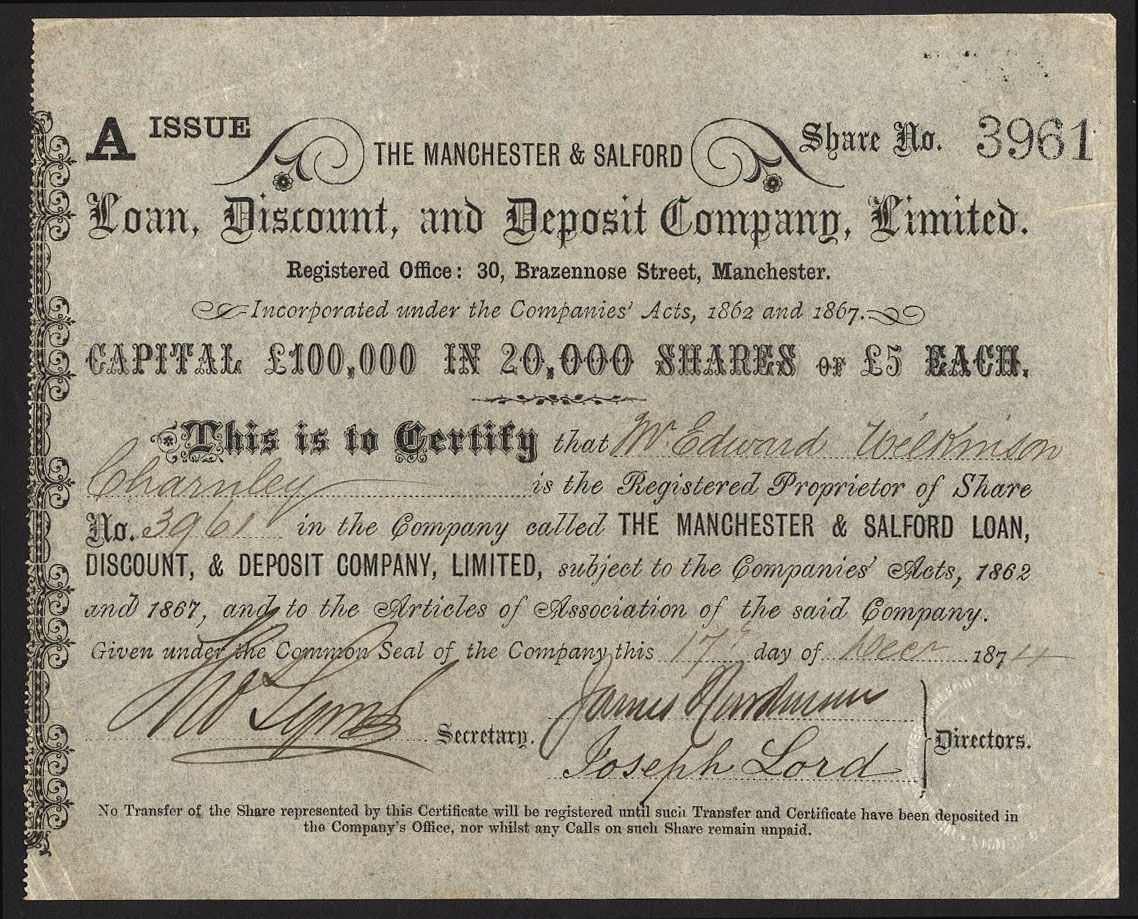 A ISSUE
Share No. 3961
THE MANCHESTER & SALFORD
Loan, Discount, and Deposit Company, Limited.
Registered Office: 30, Brazennose Street, Manchester.
Incorporated under the Companies' Acts, 1862 and 1867.
CAPITAL £100,000 IN 20,000 SHARES OF £5 EACH.
This is to Certify that Mr Edward Wilkinson
Charnley is the Registered Proprietor of Share
No. 3961 in the Company called THE MANCHESTER & SALFORD LOAN,
DISCOUNT, & DEPOSIT COMPANY, LIMITED, subject to the Companies' Acts, 1862
and 1867, and to the Articles of Association of the said Company.
Given under the Common Seal of the Company this 17th day of Decr 1874
Secretary.
James
Joseph Lord
Directors.
No Transfer of the Share represented by this Certificate will be registered until such Transfer and Certificate have been deposited in
the Company's Office, nor whilst any Calls on such Share remain unpaid.